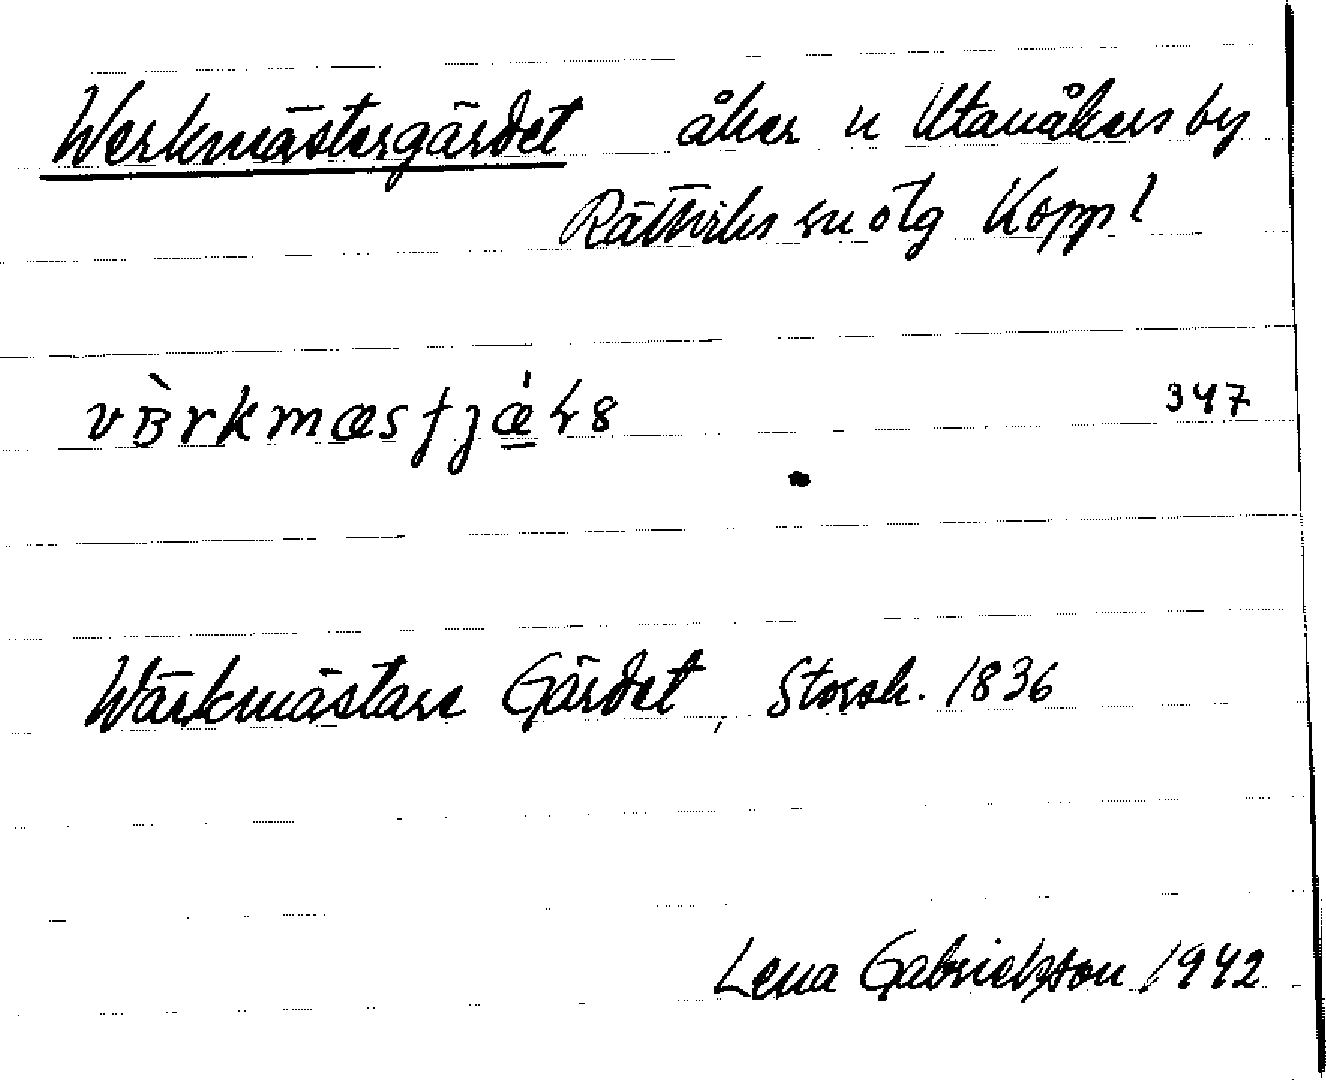 Werkmästergärdet åker n Utanåkers by
Rättviks sn o tg Kopp l
347
Wärkmästare Gärdet, Storsk. 1836
Lena Gabrielsson 1942